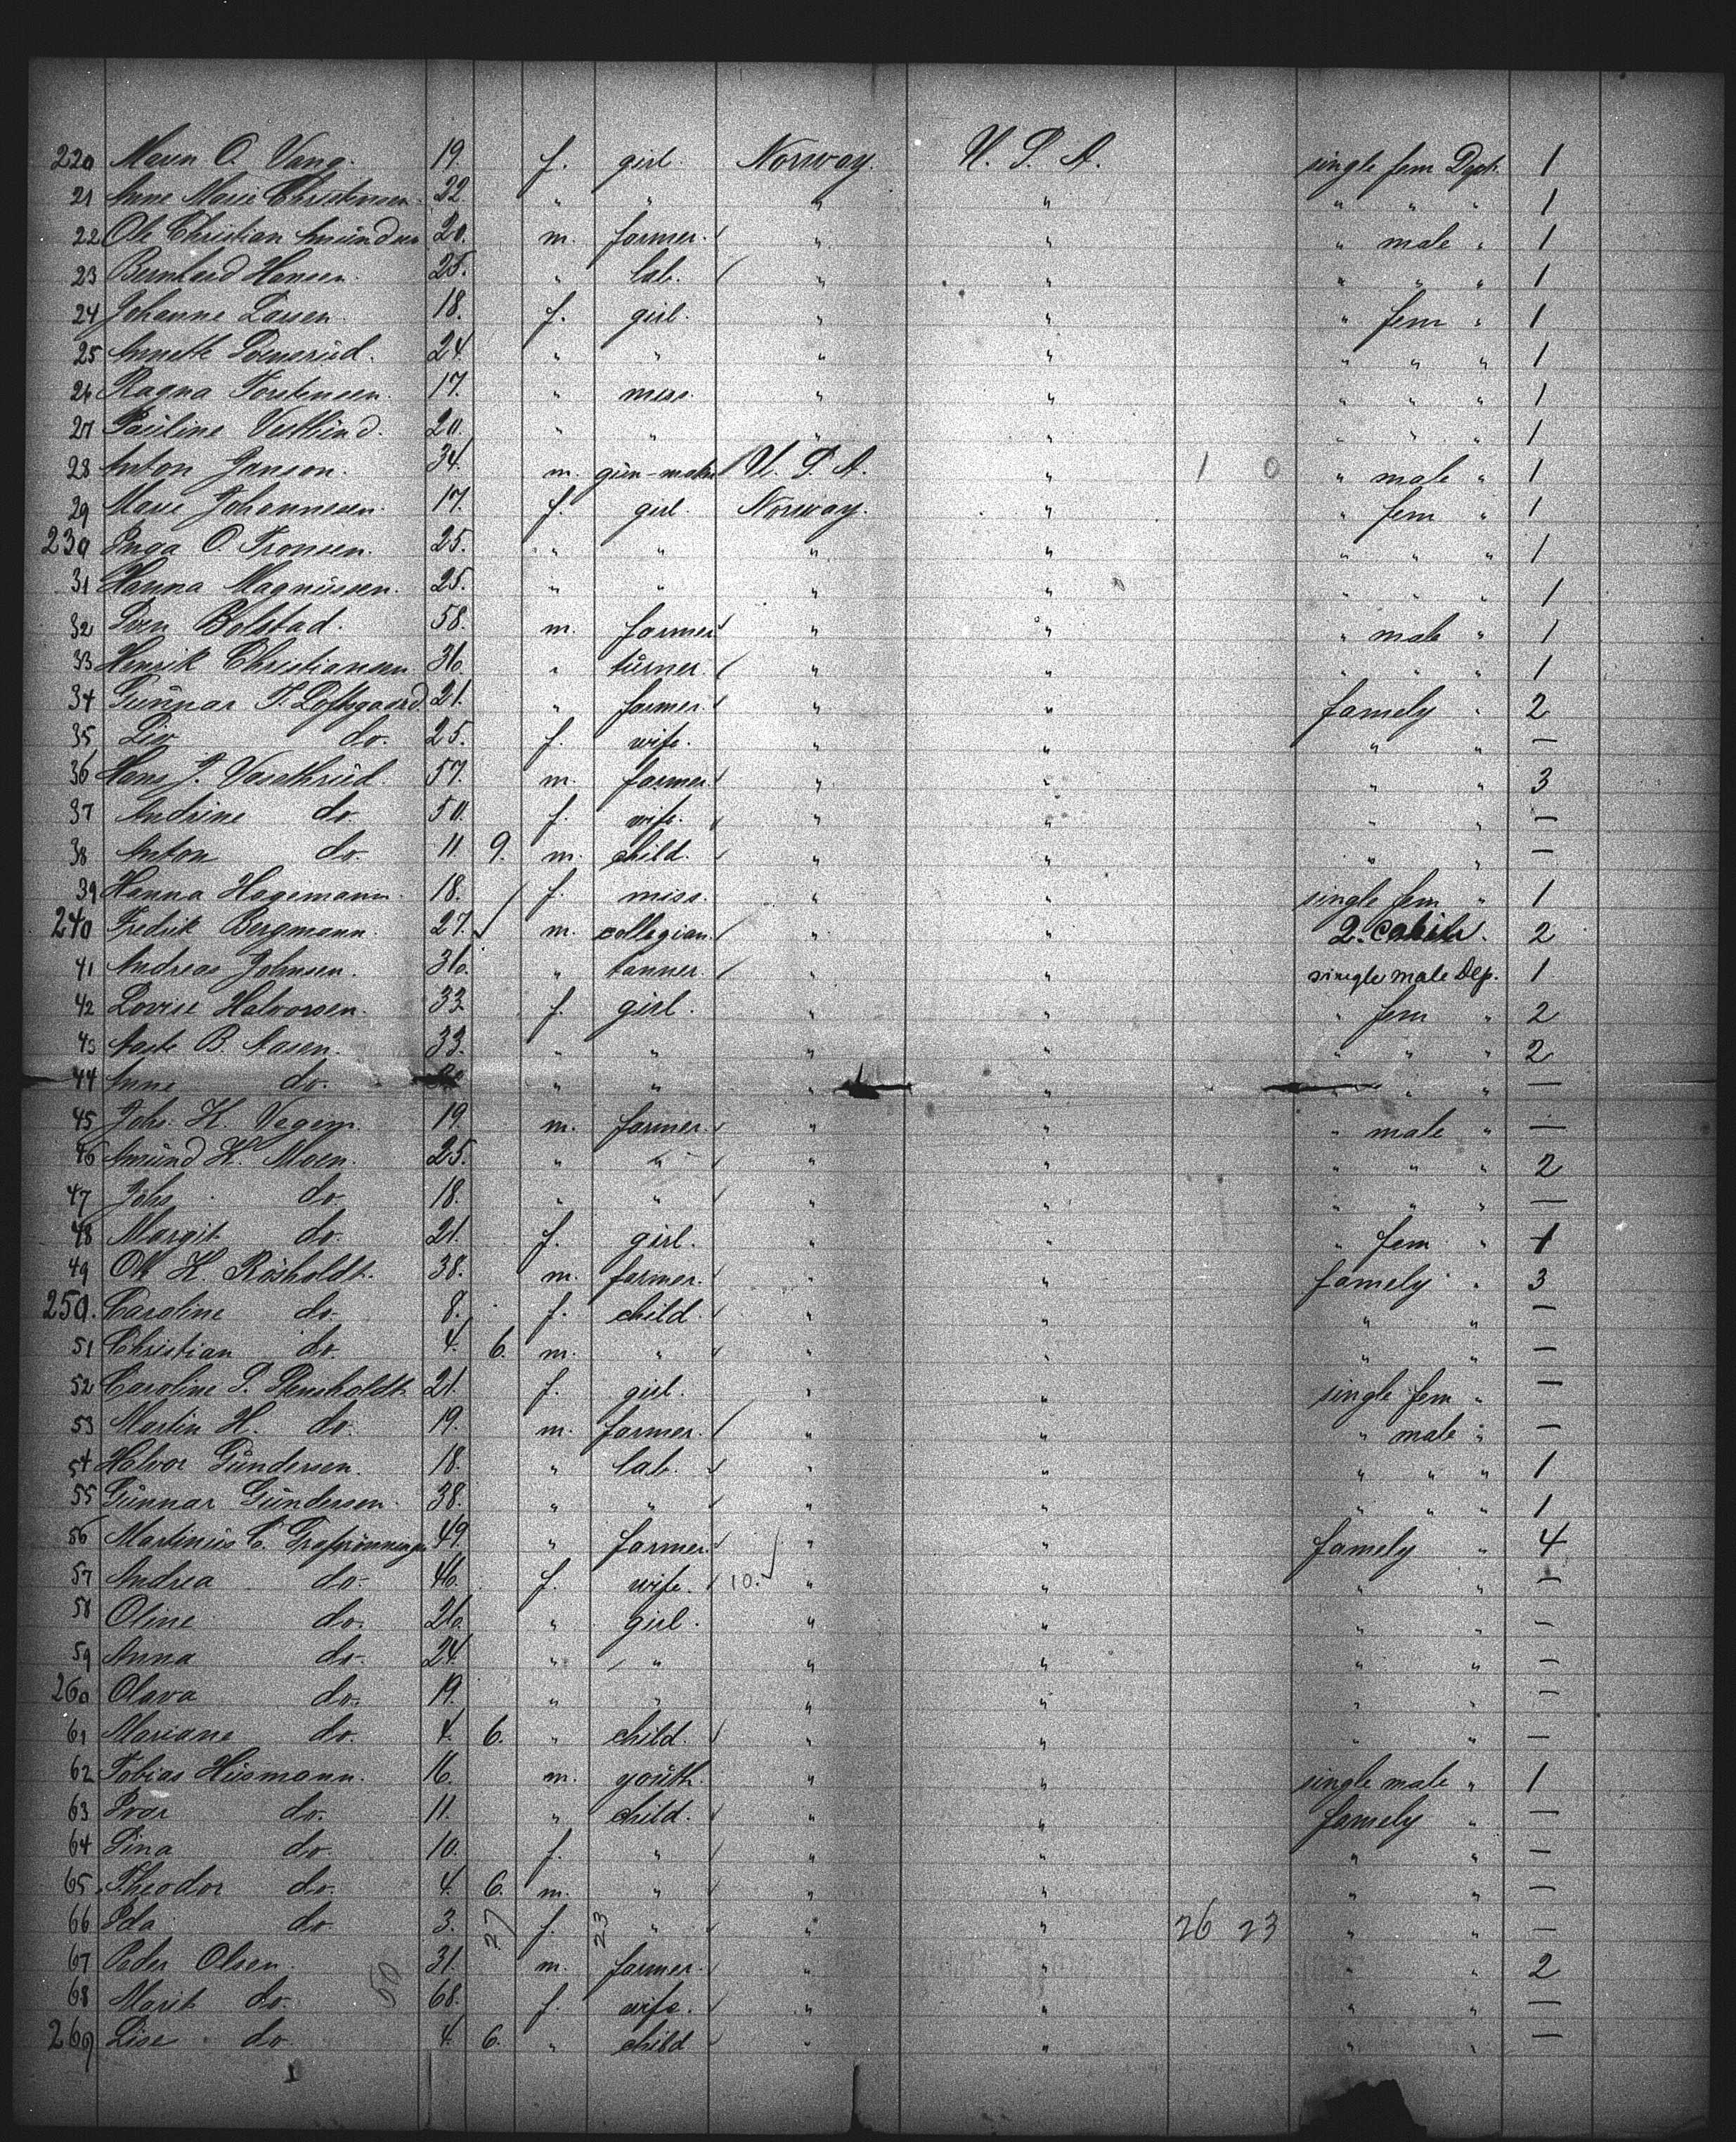 220 Maren O. Vang. 19. f. girl. Norway. U. S. A. single fem Dept. 1
21 Anne Marie Christensen. 22. " " " " " " " 1
22 Ole Christian 20. m. farmer. " " " male " 1
23 Bernhard Hansen. 25. " lab. " " " " " 1
24 Johanne Larsen. 18. f. girl. " " " fem " 1
25 Annette 24. " " " " " " " 1
26 Ragna Torstensen. 17. " miss. " " " " " 1
27 Pauline 20. " " " " " " " 1
28 Anton Janson. 34. m. gun-maker U. S. A. " 1 0 " male " 1
29 Marie Johannesen. 17. f. girl. Norway. " " fem " 1
230 Inga O. Tronsen. 25. " " " " " " " 1
31 Hanna Magnussen. 25. " " " " " " " 1
32 Sven Bolstad. 58. m. farmer " " " male " 1
33 Henrik Christiansen 36. " turner. " " " " " 1
34 Gunnar T. Loftsgaard 21. " farmer. " " famely " 2
35 Liv do. 25. f. wife. " " " " —
36 Hans J. 57. m. farmer. " " " " 3
37 Andrine do. 50. f. wife. " " " " —
38 Anton do. 11 9. m. child. " " " " —
39 Hanna Hagemann. 18. f. miss. " " single fem " 1
240 Fredrik Bergmann. 27. m. collegian. " " 2. Cabin. 2
41 Andreas Johnsen. 36. " tanner. " " single male Dep. 1
42 Lovise Halvorsen. 33. f. girl. " " " fem " 2
43 Aaste B. Aasen. 33. " " " " " " " 2
44 Anne do. " " " " " " " —
45 Johs. H. Vegem. 19. m. farmer. " " " male " —
46 Amund H. Moen. 25. " " " " " " " 2
47 Johs do. 18. " " " " " " " —
48 Margit do. 21. f. girl. " " " fem " 1
49 Ole H. Rösholdt. 38. m. farmer. " " famely " 3
250. Caroline do. 8. f. child. " " " " —
51 Christian do. 4. 6. m. " " " " " —
52 Caroline S. Stensholdt 21. f. girl. " " single fem " —
53 Martin H. do. 19. m. farmer. " " " male " —
54 Halvor Gundersen. 18. " lab. " " " " " 1
55 Gunnar Gundersen. 38. " " " " " " " 1
56 Martinius C. 49. " farmer. " " famely " 4
57 Andrea do. 46. f. wife. 10. " " " " —
58 Oline do. 26. " girl. " " " " —
59 Anna do. 24. " " " " " " —
260 Olava do. 19. " " " " " " —
61 Mariane do. 4. 6. " child. " " " " —
62 Tobias Husmann. 16. m. youth. " " single male " 1
63 Ivar do. 11. " child. " " famely " —
64 Lina do. 10. f. " " " " " —
65 Theodor do. 4. 6. m. " " " " " —
66 Ida do. 3. 27 f. 23 " " " 26 23 " " —
67 Peder Olsen. 31. m. farmer. " " " " 2
68 Marit do. 50 68. f. wife. " " " " —
269 Lise do. 4. 6. " child " " " " —